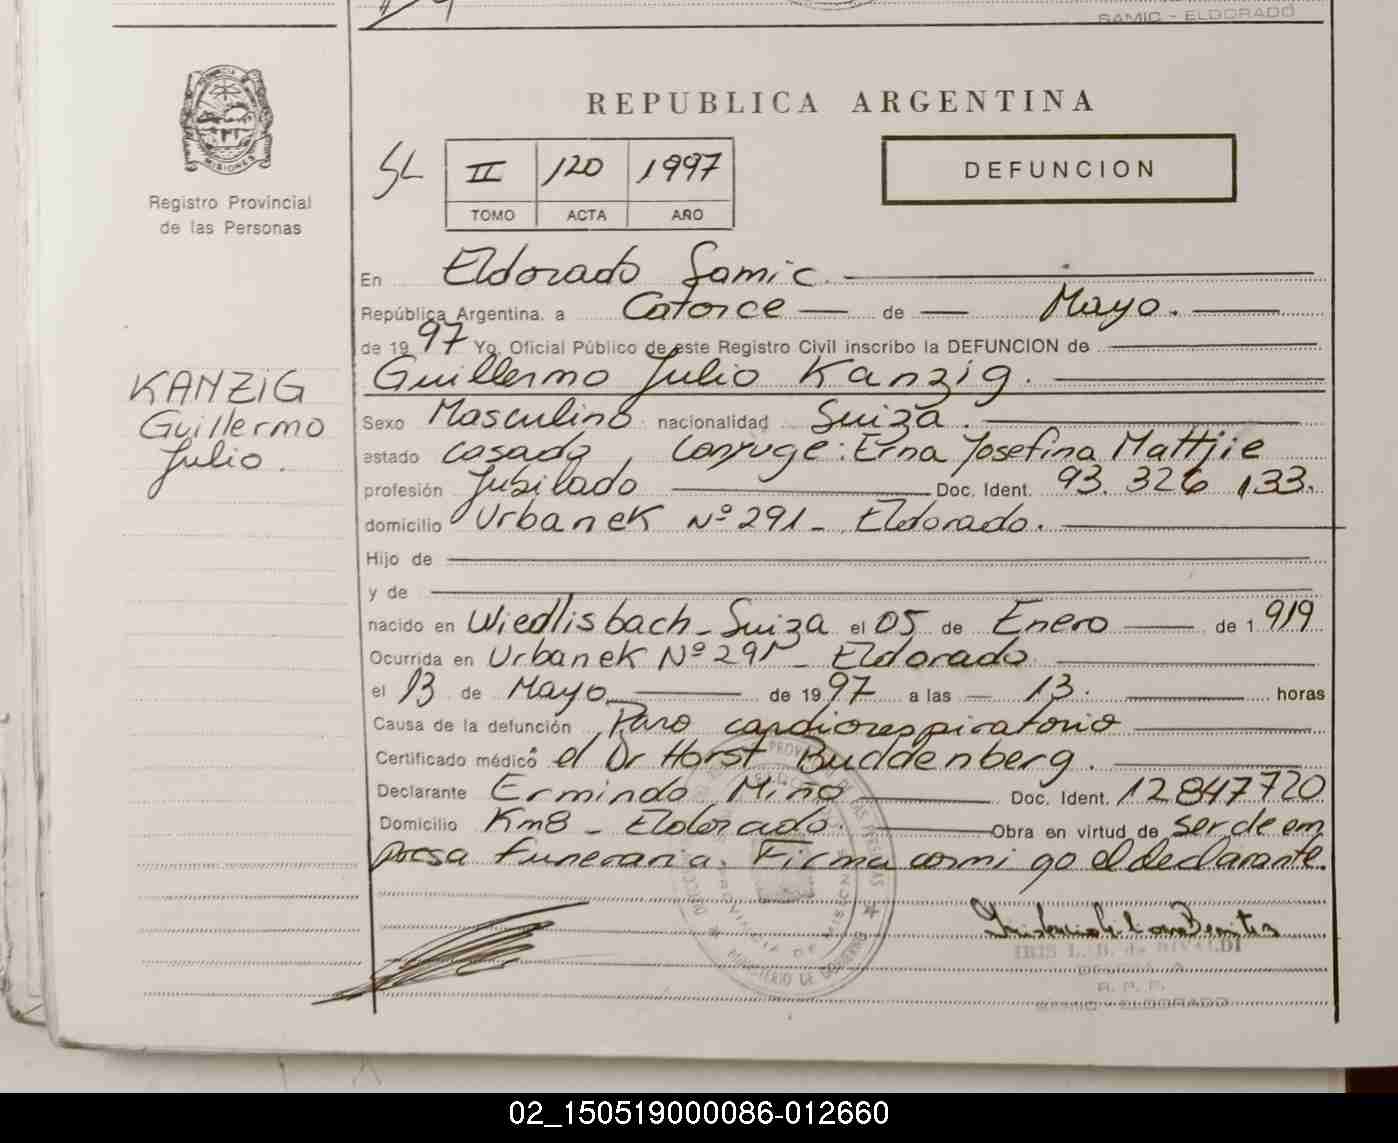 SAMIC - ELDORADO
REPUBLICA ARGENTINA
PROVINCIA DE
MISIONES
Registro Provincial
de las Personas
SL II 120 1997
TOMO ACTA AÑO
DEFUNCION
En Eldorado Samic.
República Argentina. a Catorce de Mayo.
de 1997 Yo, Oficial Público de este Registro Civil inscribo la DEFUNCION de
Guillermo Julio Kanzig.
KANZIG
Guillermo
Julio.
Sexo Masculino nacionalidad Suiza.
estado casado, Conyuge: Erna Josefina Mattjie
profesión Jubilado Doc. Ident. 93.326.133.
domicilio Urbanek Nº 291 - Eldorado.
Hijo de
y de
nacido en Wiedlisbach - Suiza el 05 de Enero de 1919
Ocurrida en Urbanek Nº 291 - Eldorado
el 13 de Mayo de 1997 a las 13. horas
Causa de la defunción Paro cardiorespiratorio
Certificado médico el Dr Horst Buddenberg.
Declarante Ermindo Miño Doc. Ident. 12847720
Domicilio Km8 - Eldorado Obra en virtud de ser de em
presa funeraria. Firma conmigo el declarante.
MINISTERIO DE GOBIERNO
PROVINCIA DE MISIONES
IRIS L. B. de RIVALDI
R. P. P.
SAMIC - ELDORADO
02_150519000086-012660